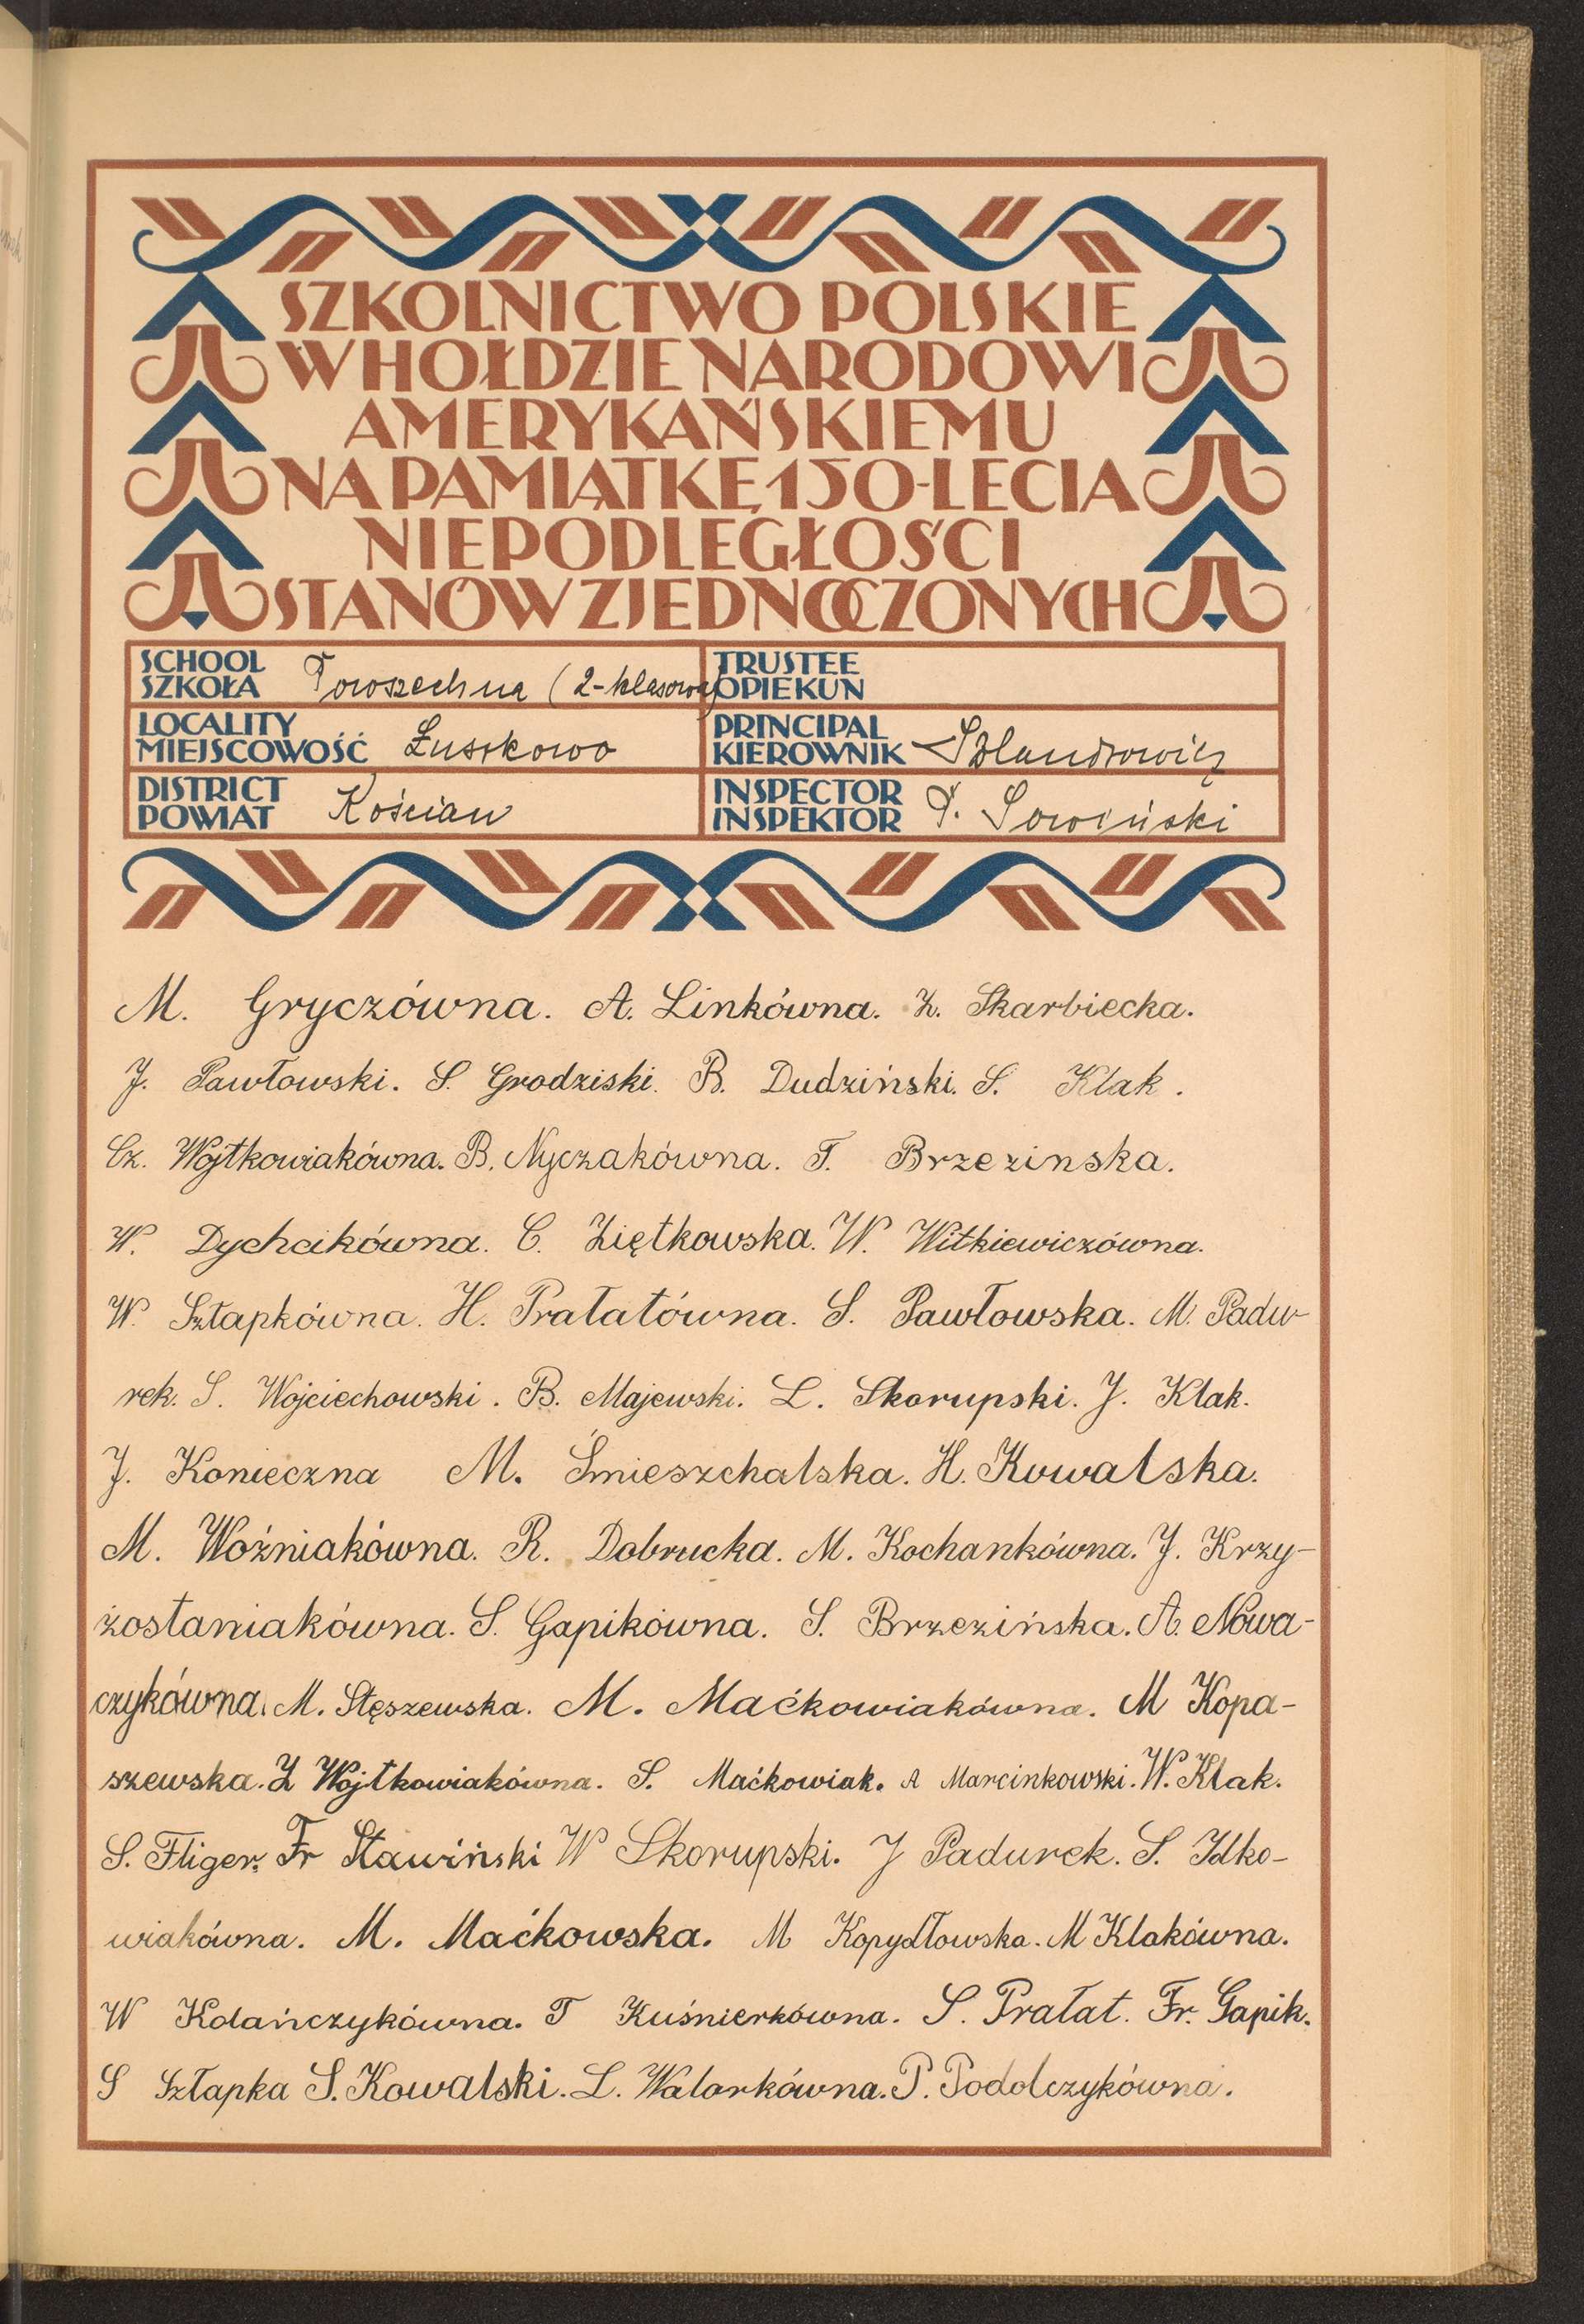 SZKOLNICTWO POLSKIE
W HOŁDZIE NARODOWI
AMERYKAŃSKIEMU
NA PAMIĄTKĘ 150-LECIA
NIEPODLEGŁOŚCI
STANÓW ZJEDNOCZONYCH
SCHOOL
SZKOŁA Powszechna (2-klasowa)
TRUSTEE
OPIEKUN
LOCALITY
MIEJSCOWOŚĆ Łuszkowo
PRINCIPAL
KIEROWNIK
DISTRICT
POWIAT Kościan
INSPECTOR
INSPEKTOR P. Sowiński
M. Gryczówna. A. Linkówna. Z. Skarbiecka.
J. Pawłowski. S. Grodziski. B. Dudziński. S. Klak.
Cz. Wojtkowiakówna. B. Nyczakówna. T. Brzezinska.
W. Dychcikówna. C. Ziętkowska. W. Witkiewiczówna.
W. Sztapkówna. H. Prałatówna. S. Pawłowska. M. Padu-
rek. S. Wojciechowski. B. Majewski. L. Skorupski. J. Klak.
J. Konieczna M. Śmieszchalska. H. Kowalska.
M. Woźniakówna. R. Dobrucka. M. Kochankówna. J. Krzy-
żostaniakówna. S. Gapikówna. S. Brzezińska. A. Nowa-
czykówna. M. Stęszewska. M. Maćkowiakówna. M Kopa-
szewska. Z Wojtkowiakówna. S. Maćkowiak. A Marcinkowski. W. Klak.
S. Fliger. Fr Stawiński W Skorupski. J Padurek. S. Idko-
wiakówna. M. Maćkowska. M Kopydłowska. M Klakówna.
W Kolańczykówna. T Kuśnierkówna. S. Prałat. Fr. Gapik.
S Szłapka S. Kowalski. L. Walorkówna. P. Podolczykówna.